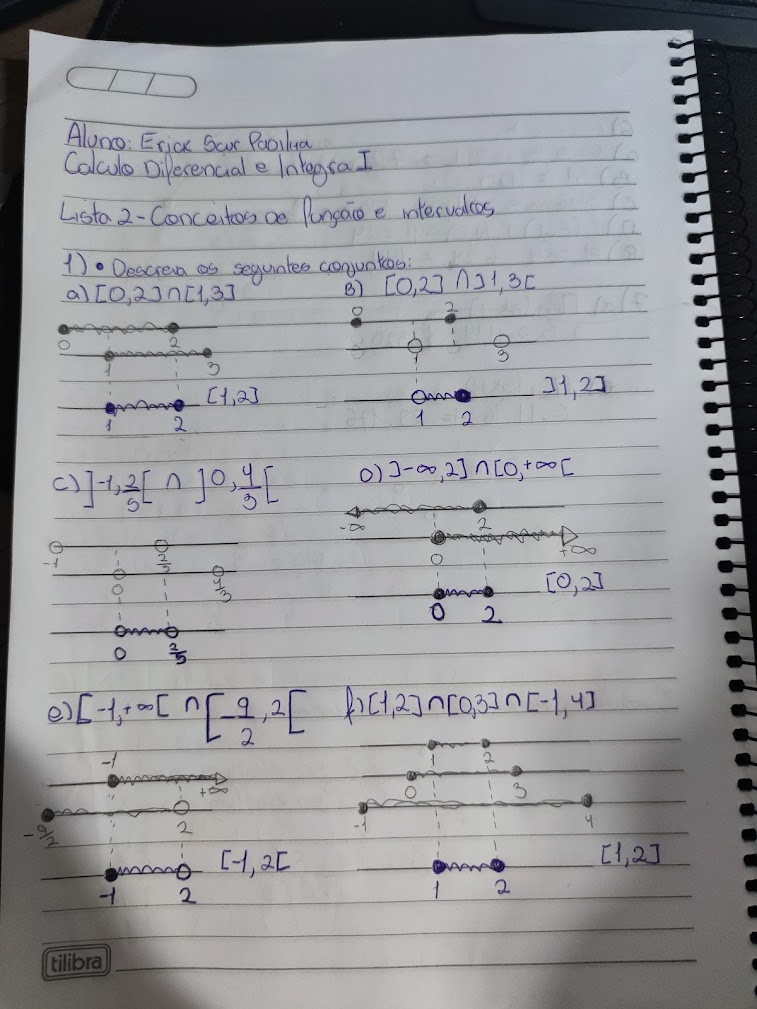 Aluno: Erick Scur Padilha
Calculo Diferencial e Integral I
Lista 2 - Conceitos de função e intervalos
1) • Descreva os seguntes conjuntos:
a) [0,2] ∩ [1,3]
B) [0,2] ∩ ]1,3[
0 2
1 3
[1,2]
1 2
0 2
1 3
]1,2]
1 2
c) ]-1, 2/5[ ∩ ]0, 4/3[
D) ]-∞,2] ∩ [0,+∞[
-1 2/5
0 4/3
0 2/5
-∞ 2
0 +∞
[0,2]
0 2
e) [-1,+∞[ ∩ [-9/2, 2[
f) [1,2] ∩ [0,3] ∩ [-1,4]
-1 +∞
-9/2 2
[-1,2[
-1 2
1 2
0 3
-1 4
[1,2]
1 2
tilibra